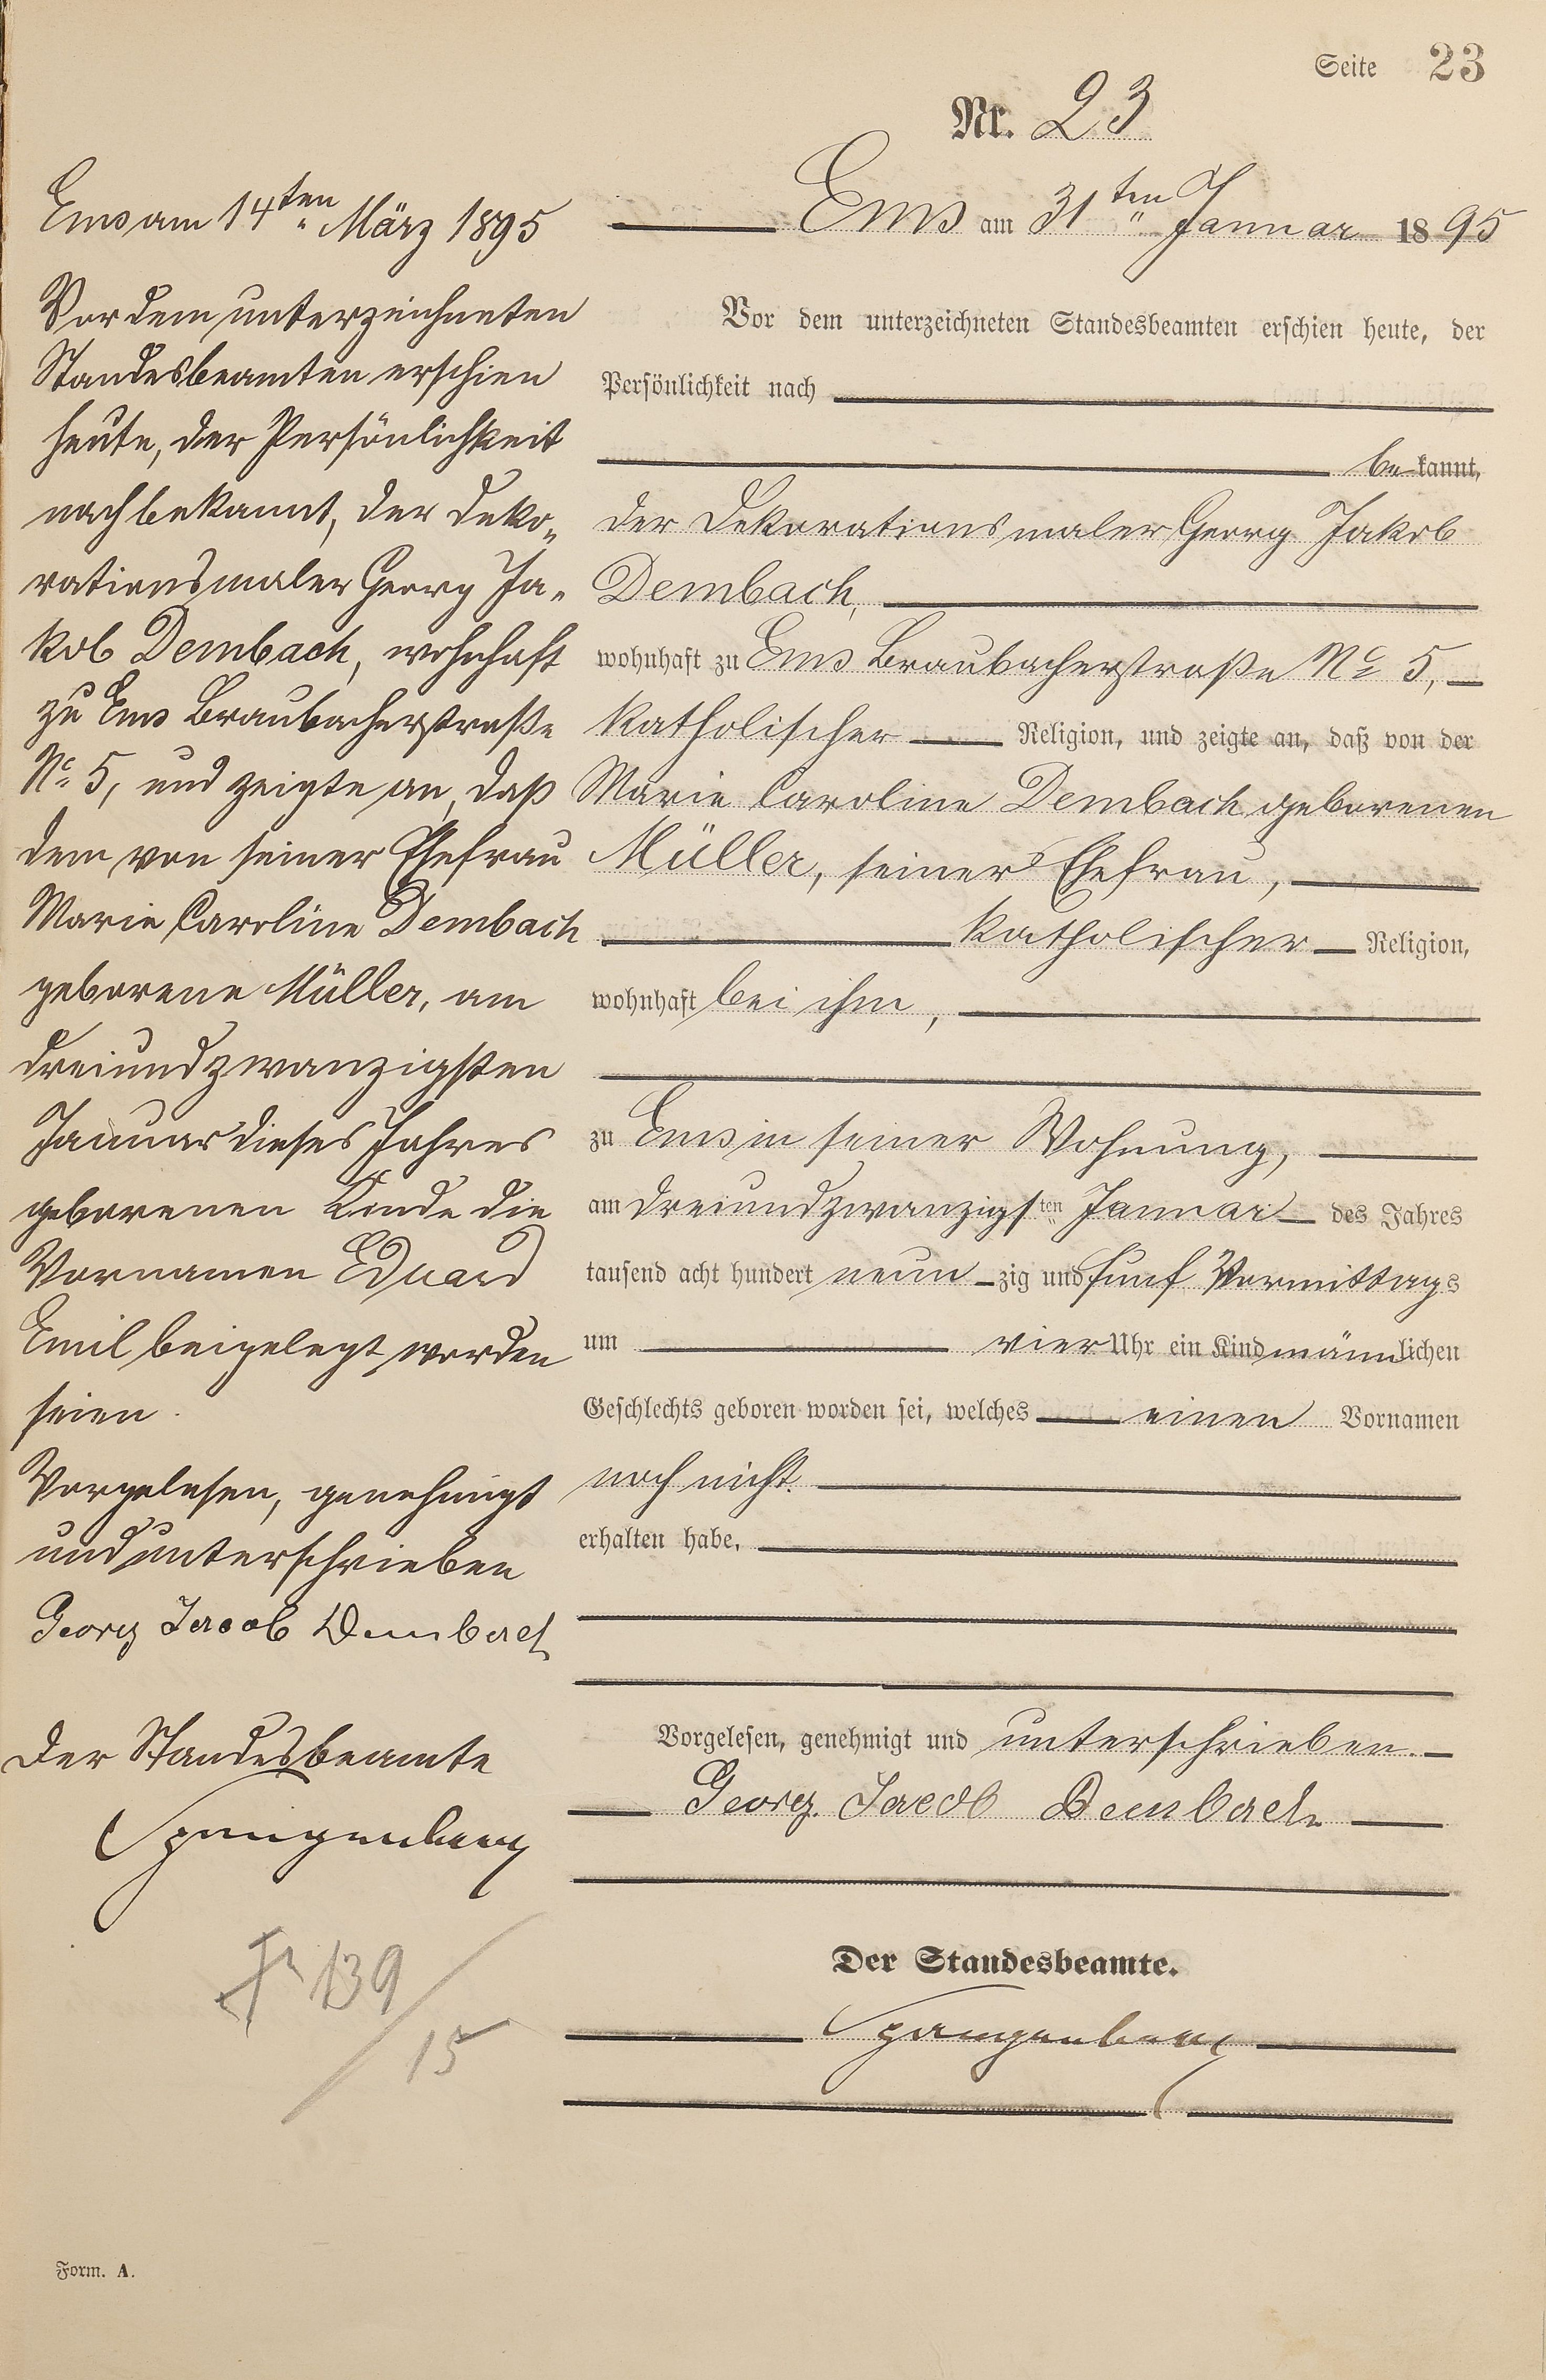 Seite 23
Nr. 23
Ems am 31ten Januar 1895
Vor dem unterzeichneten Standesbeamten erschien heute, der
Persönlichkeit nach
bekannt,
der Dekorationsmaler Georg Jakob
Dembach,
wohnhaft zu Ems Braubacherstraße No 5,
katholischer Religion, und zeigte an, daß von der
Marie Caroline Dembach geborenen
Müller, seiner Ehefrau,
katholischer Religion,
wohnhaft bei ihm,
zu Ems in seiner Wohnung,
am dreiundzwanzigsten Januar des Jahres
tausend acht hundert neunzig und fünf Vormittags
um vier Uhr ein Kind männlichen
Geschlechts geboren worden sei, welches einen Vornamen
noch nicht
erhalten habe.
Vorgelesen, genehmigt und unterschrieben.
Georg Jacob Dembach
Der Standesbeamte.
Spangenberg
Ems am 14ten März 1895
Vor dem unterzeichneten
Standesbeamten erschien
heute, der Persönlichkeit
nach bekannt, der Deko-
rationsmaler Georg Ja-
kob Dembach, wohnhaft
zu Ems Braubacherstraße
No 5, und zeigte an, daß
dem von seiner Ehefrau
Marie Caroline Dembach
geborene Müller, am
dreiundzwanzigsten
Januar dieses Jahres
geborenen Kinde die
Vornamen Eduard
Emil beigelegt worden
seien.
Vorgelesen, genehmigt
und unterschrieben
Georg Jacob Dembach
Der Standesbeamte
Spangenberg
139
15
Form. A.